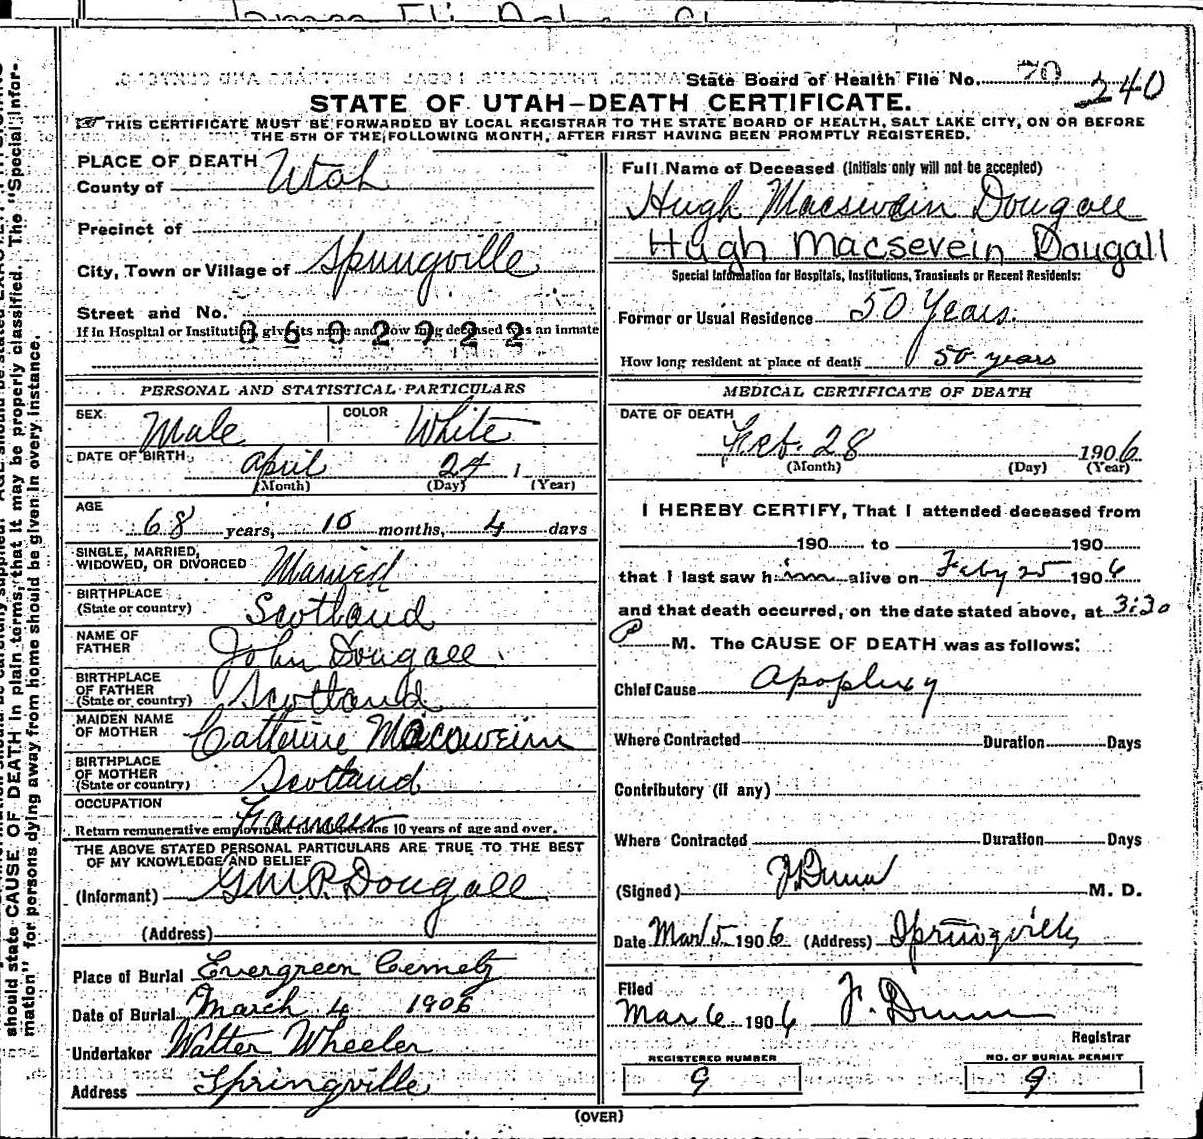 State Board of Health File No. 70 240
STATE OF UTAH—DEATH CERTIFICATE.
THIS CERTIFICATE MUST BE FORWARDED BY LOCAL REGISTRAR TO THE STATE BOARD OF HEALTH, SALT LAKE CITY, ON OR BEFORE
THE 5TH OF THE FOLLOWING MONTH, AFTER FIRST HAVING BEEN PROMPTLY REGISTERED.
PLACE OF DEATH
County of Utah
Precinct of
City, Town or Village of Springville
Street and No.
If in Hospital or Institution, give its name and how long deceased was an inmate
0602922
PERSONAL AND STATISTICAL PARTICULARS
SEX Male COLOR White
DATE OF BIRTH April 24 1
(Month) (Day) (Year)
AGE
68 years, 10 months, 4 days
SINGLE, MARRIED,
WIDOWED, OR DIVORCED Married
BIRTHPLACE
(State or country) Scotland
NAME OF
FATHER John Dougall
BIRTHPLACE
OF FATHER
(State or country) Scotland
MAIDEN NAME
OF MOTHER Catterine Macswein
BIRTHPLACE
OF MOTHER
(State or country) Scotland
OCCUPATION Farmer
Return remunerative employment for all persons 10 years of age and over.
THE ABOVE STATED PERSONAL PARTICULARS ARE TRUE TO THE BEST
OF MY KNOWLEDGE AND BELIEF
(Informant) G.M.P. Dougall
(Address)
Place of Burial Evergreen Cemetry
Date of Burial March 4 1906
Undertaker Walter Wheeler
Address Springville
Full Name of Deceased (Initials only will not be accepted)
Hugh Macswein Dougall
Hugh Macsevein Dougall
Special Information for Hospitals, Institutions, Transients or Recent Residents:
Former or Usual Residence 50 Years.
How long resident at place of death 50 years
MEDICAL CERTIFICATE OF DEATH
DATE OF DEATH
Feb. 28 1906
(Month) (Day) (Year)
I HEREBY CERTIFY, That I attended deceased from
190 to 190
that I last saw him alive on Feby 25 1906
and that death occurred, on the date stated above, at 3:30
P M. The CAUSE OF DEATH was as follows:
Chief Cause Apoplexy
Where Contracted Duration Days
Contributory (if any)
Where Contracted Duration Days
(Signed) F Dunn M. D.
Date Mar 5 1906 (Address) Springville
Filed
Mar 6 1906 F. Dunn
Registrar
REGISTERED NUMBER
9
NO. OF BURIAL PERMIT
9
(OVER)
should state CAUSE OF DEATH in plain terms, that it may be properly classified. The "Special Infor-
mation" for persons dying away from home should be given in every instance.